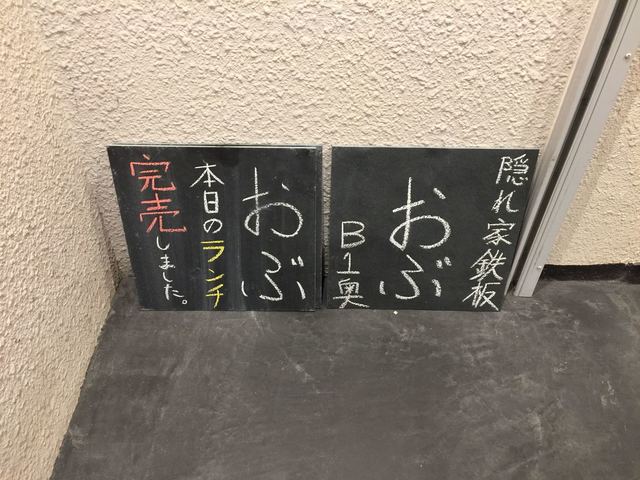 おぶ
本日のランチ
完売しました。
隠れ家鉄板
おぶ
B1奥